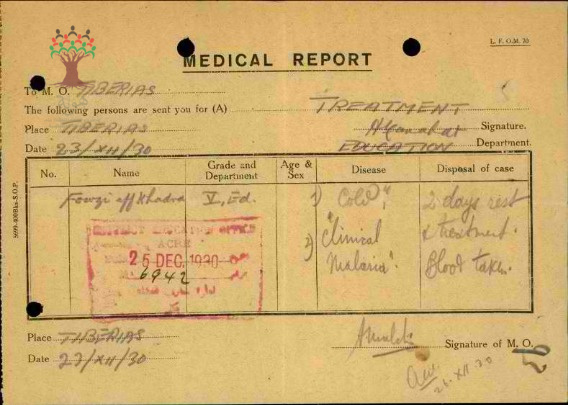 L. F. O.M. 30
MEDICAL REPORT
To M. O. TIBERIAS
The following persons are sent you for (A) TREATMENT
Place TIBERIAS Signature.
Date 23/XII/30 EDUCATION Department.
No. Name Grade and Department Age & Sex Disease Disposal of case
Fawzi eff Khadra V, Ed. 1) "Cold"; 2 days rest
2) "Clinical & treatment.
Malaria". Blood taken.
DISTRICT EDUCATION OFFICE
ACRE
25 DEC. 1930
6942
Place TIBERIAS
Signature of M. O.
Date 23/XII/30
26.XII.30